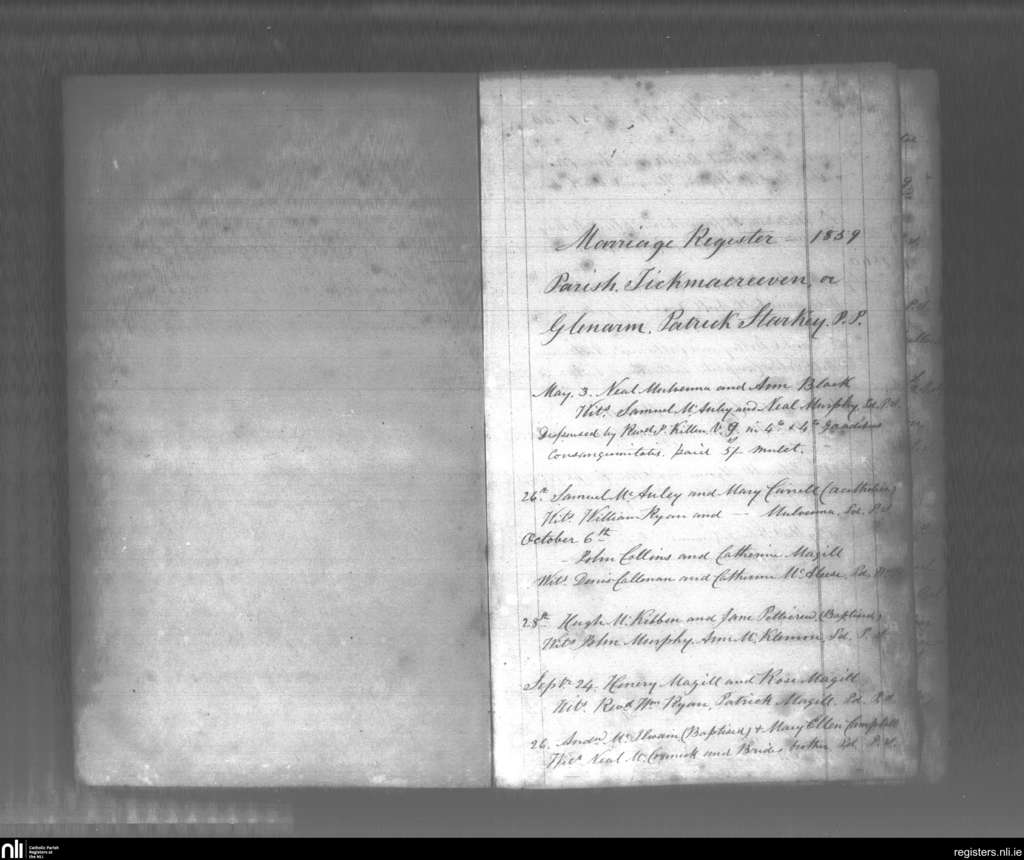 Marriage Register - 1859
Parish. Tickmacreeven, or
Glenarm. Patrick Starkey. P.P.
May. 3. Neal Mulvenna and Ann Black
Wits. Samuel McAuley and Neal Murphy. Sd. P. S.
Dispensed by Revd. P. Killen V. G. in 4to. & 4to. gradibus
consanguinitatis. paid 5/ mulct.
26th. Samuel McAuley and Mary (acatholic)
Wits. William Ryan and -- Mulvenna, Sd. P. S
October 6th
John Collins and Catherine Magill
Wits. Denis Callenan and Catherine McAleese. Sd.
28th Hugh McKibben and Jane (Baptised)
Wits. John Murphy. Ann Sd. P. S.
Septr. 24. Henery Magill and Rose Magill
Wits. Revd. Wm. Ryan, Patrick Magill. Sd. P. S
26. Andw. McIlwain (Baptised) & Mary Ellen Campbell
Wits. Neal McCormick and Brides brother Sd. P. S.
nli
Catholic Parish
Registers at
the NLI
registers.nli.ie